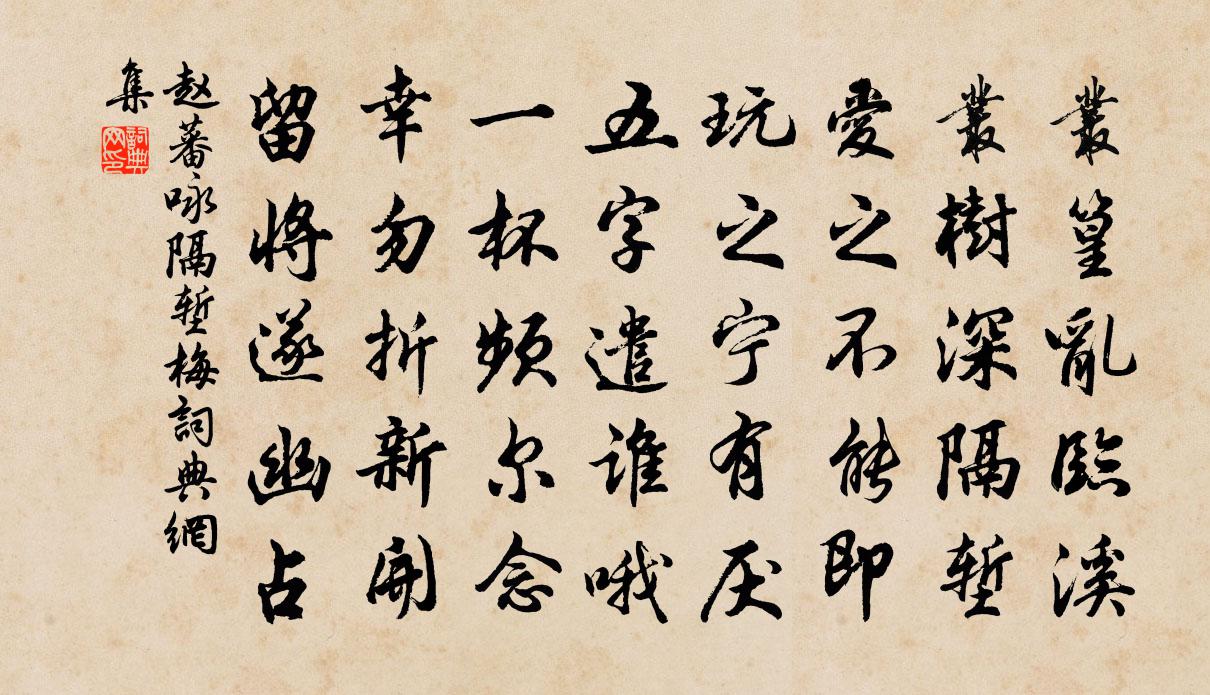 叢篁亂臨溪
叢樹深隔塹
愛之不能即
玩之宁有厌
五字遣谁哦
一杯频尔念
幸勿折新開
留將遂幽占
赵蕃咏隔塹梅詞典網
集
詞典网印